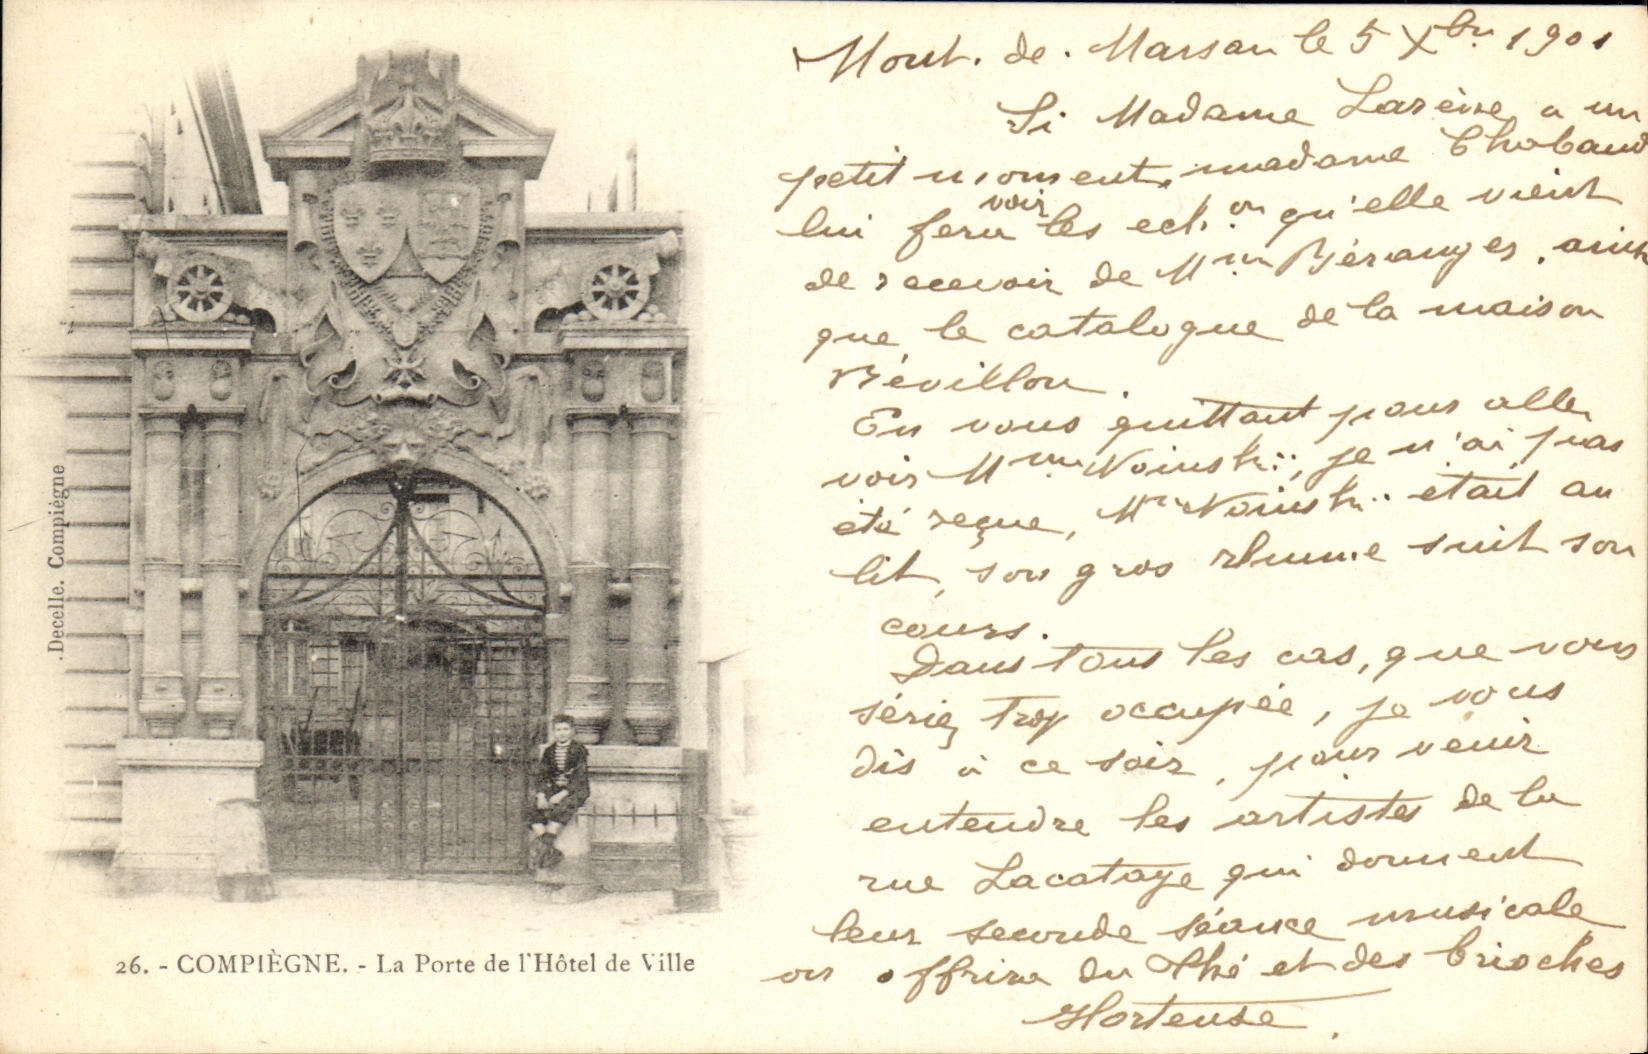 Mont. de. Marsan le 5 Xbre 1901
Si Madame Lareire a un
petit moment, madame Chabaud
lui fera voir les echon qu'elle vient
de recevoir de Mme Béranger, ainsi
que le catalogue de la maison
Révillon.
En vous quittant pour aller
voir Mme je n'ai pas
été reçue, était au
lit, son gros rhume suit son
cours.
Dans tous les cas, que vous
sériez trop occupée, je vous
dis à ce soir, pour venir
entendre les artistes de la
rue Lacataye qui donnent
leur seconde séance musicale
on offrira du thé et des brioches
Hortense.
.Decelle. Compiègne
26. - COMPIÈGNE. - La Porte de l'Hôtel de Ville